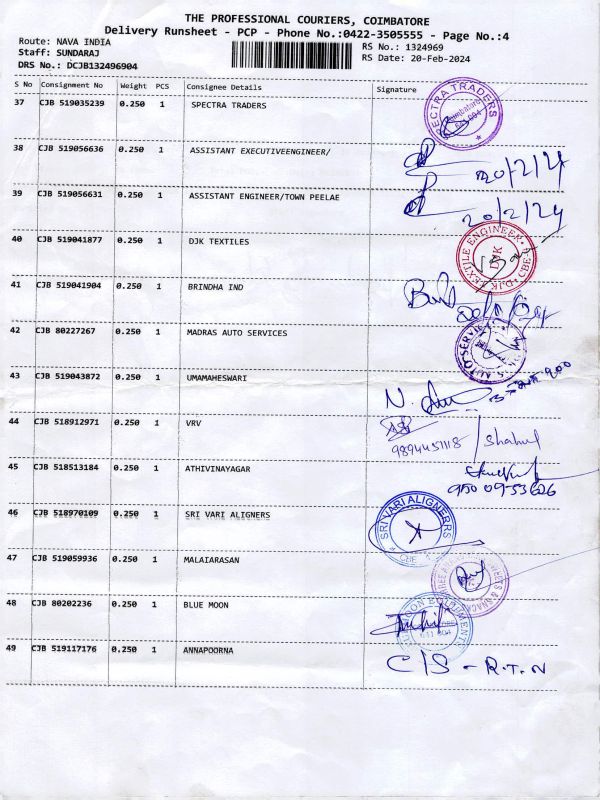 THE PROFESSIONAL COURIERS, COIMBATORE
Delivery Runsheet - PCP - Phone No.:0422-3505555 - Page No.:4
Route: NAVA INDIA
RS No.: 1324969
Staff: SUNDARAJ
RS Date: 20-Feb-2024
DRS No.: DCJB132496904
S No Consignment No Weight PCS Consignee Details Signature
37 CJB 519035239 0.250 1 SPECTRA TRADERS
SPECTRA TRADERS
38 CJB 519056636 0.250 1 ASSISTANT EXECUTIVEENGINEER/
20/2/24
39 CJB 519056631 0.250 1 ASSISTANT ENGINEER/TOWN PEELAE
20/2/24
40 CJB 519041877 0.250 1 DJK TEXTILES
TEXTILE ENGINEER
DJK
41 CJB 519041904 0.250 1 BRINDHA IND
42 CJB 80227267 0.250 1 MADRAS AUTO SERVICES
43 CJB 519043872 0.250 1 UMAMAHESWARI
44 CJB 518912971 0.250 1 VRV
9894451118 / Shahul
45 CJB 518513184 0.250 1 ATHIVINAYAGAR
46 CJB 518970109 0.250 1 SRI VARI ALIGNERS
SRI VARI ALIGNERRS
47 CJB 519059936 0.250 1 MALAIARASAN
48 CJB 80202236 0.250 1 BLUE MOON
49 CJB 519117176 0.250 1 ANNAPOORNA
C/S - R.T.N